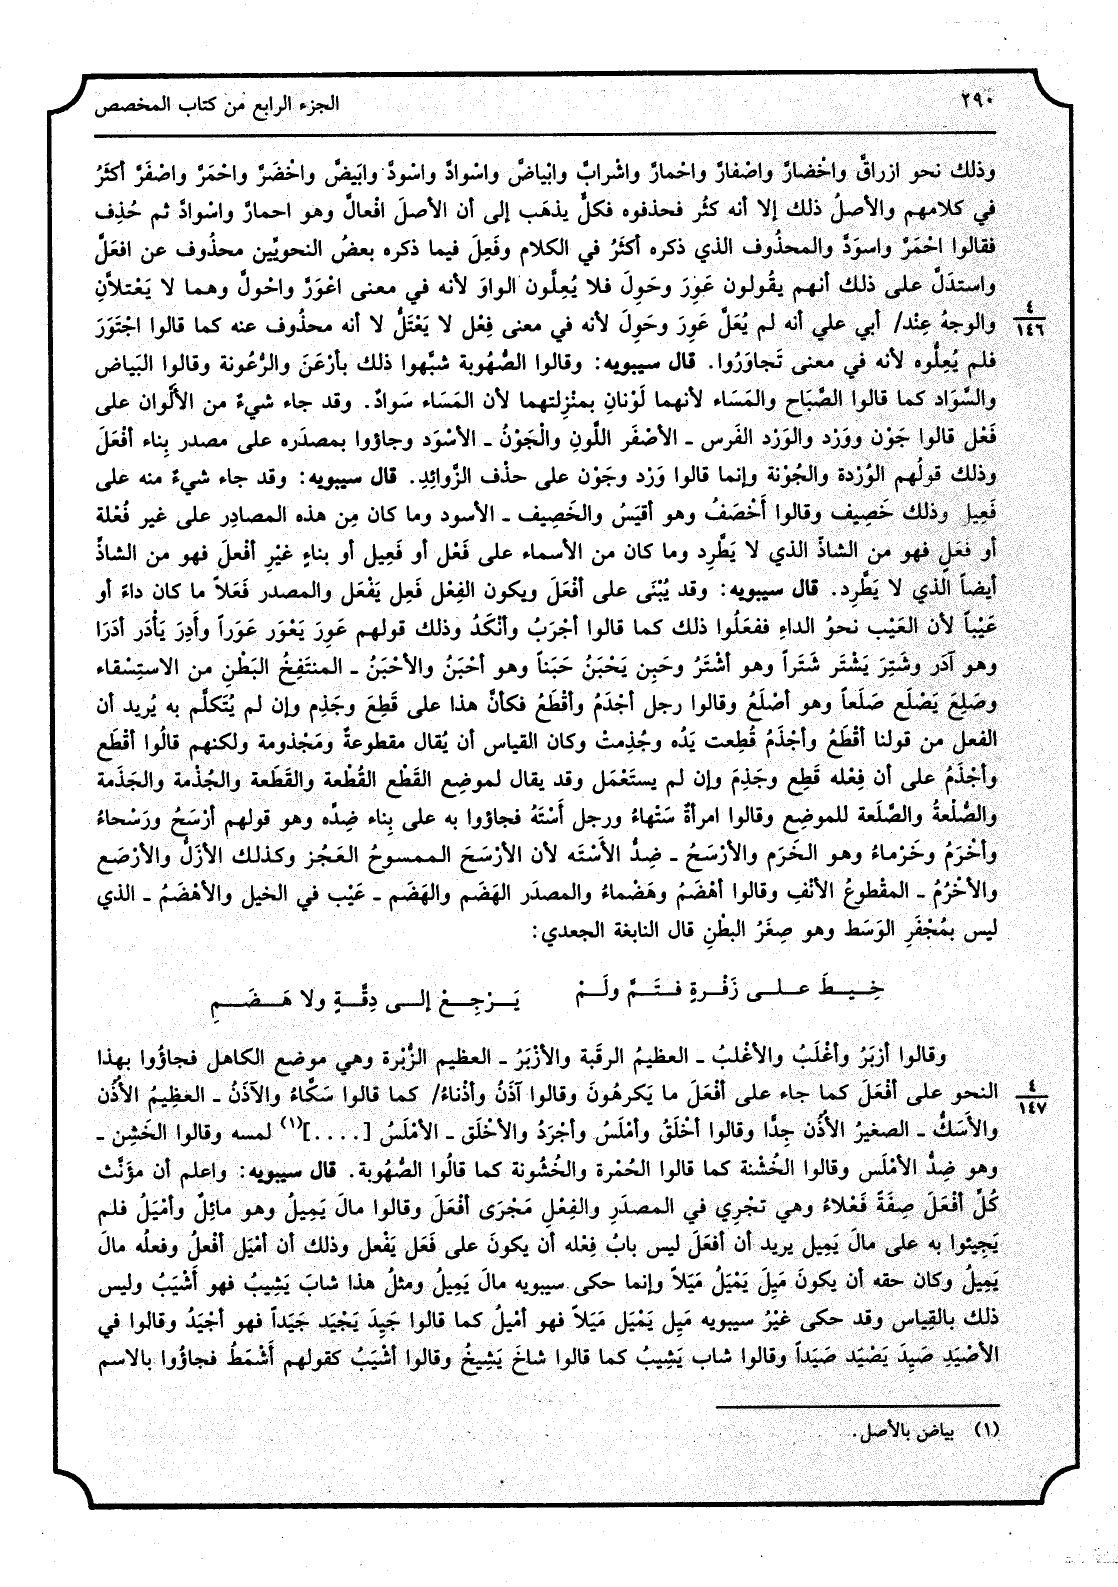 ٢٩٠
الجزء الرابع من كتاب المخصص
وذلك نحو ازراقَّ واخْضارَّ واصْفارَّ واحْمارَّ واشْرابَّ وابْياضَّ واسْوادَّ واسْودَّ وابَيضَّ واخْضَرَّ واحْمَرَّ واصْفَرَّ أكثَرُ
في كلامهم والأصلُ ذلك إلا أنه كثُر فحذفوه فكلٌّ يذهَب إلى أن الأصلَ افْعالَّ وهو احمارَّ واسْوادَّ ثم حُذِف
فقالوا احْمَرَّ واسوَدَّ والمحذُوف الذي ذكره أكثَرُ في الكلام وفَعِلَ فيما ذكره بعضُ النحويِّين محذُوف عن افعَلَّ
واستدَلَّ على ذلك أنهم يقُولون عَوِرَ وحَوِلَ فلا يُعِلُّون الواوَ لأنه في معنى اعْوَرَّ واحْولَّ وهما لا يَعْتلاَّنِ
والوجهُ عِنْد/ أبي علي أنه لم يُعَلَّ عَوِرَ وحَوِلَ لأنه في معنى فِعْل لا يَعْتَلُّ لا أنه محذُوف عنه كما قالوا اجْتَوَرَ
٤
١٤٦
فلم يُعِلُّوه لأنه في معنى تَجاوَرُوا. قال سيبويه: وقالوا الصُّهُوبة شبَّهوا ذلك بأرْعَنَ والرُّعُونة وقالوا البَياض
والسَّوَاد كما قالوا الصَّبَاح والمَسَاء لأنهما لَوْنانِ بمنْزِلتهما لأن المَسَاء سَوادٌ. وقد جاء شيءٌ من الألْوان على
فَعْل قالوا جَوْن ووَرْد والوَرْد الفَرس ـ الأصْفَر اللَّونِ والْجَوْنُ ـ الأسْوَد وجاؤوا بمصدَره على مصدر بِناء أفْعَلَ
وذلك قولُهم الوُرْدة والجُوْنة وإنما قالوا وَرْد وجَوْن على حذْف الزَّوائِدِ. قال سيبويه: وقد جاء شيءٌ منه على
فَعِيل وذلك خَصِيف وقالوا أَخْصَفُ وهو أقيَسُ والخَصِيف ـ الأسود وما كان مِن هذه المصادِر على غير فُعْلة
أو فَعَلٍ فهو من الشاذِّ الذي لا يَطَّرِد وما كان من الأسماء على فَعْل أو فَعِيل أو بناءِ غيْرِ أفْعلَ فهو من الشاذِّ
أيضاً الَّذي لا يَطَّرِد. قال سيبويه: وقد يُبْنَى على أفْعَلَ ويكون الفِعْل فَعِل يَفْعَل والمصدر فَعَلاً ما كان داءً أو
عَيْباً لأن العَيْب نحوُ الداءِ ففعَلُوا ذلك كما قالوا أجْرَبُ وأنْكَدُ وذلك قولهم عَوِرَ يَعْوَر عَوَراً وأَدِرَ يَأْدَر أدَرَا
وهو آدَر وشَتِرَ يَشْتَر شَتَراً وهو أشْتَرُ وحَبِن يَحْبَنُ حَبَناً وهو أحْبَنُ والأحْبَنُ ـ المنتَفِخُ البَطْنِ من الاستِسْقاء
وصَلِعَ يَصْلَع صَلَعاً وهو أصْلَعُ وقالوا رجل أجْذَمُ وأقْطَعُ فكأنَّ هذا على قَطِعَ وجَذِم وإن لم يُتَكلَّم به يُريد أن
الفعل من قولنا أقْطَعُ وأجْذَمُ قُطِعت يَدُه وجُذِمتْ وكان القياس أن يُقال مقطوعةٌ ومَجْذومة ولكنهم قالُوا أقْطَع
وأجْذَمُ على أن فِعْله قَطِع وجَذِمَ وإن لم يستَعْمَل وقد يقال لموضِع القَطْع القُطْعة والقَطَعة والجُذْمة والجَذَمة
والصُّلْعةُ والصَّلَعة للموضِع وقالوا امرأةٌ سَتْهاءُ ورجل أَسْتَهُ فجاؤوا به على بِناء ضِدِّه وهو قولهم أرْسَحُ ورَسْحاءُ
وأخْرَمُ وخَرْماءُ وهو الخَرَم والأرْسَحُ ـ ضِدُّ الأَسْتَه لأن الأرْسَحَ الممسوحُ العَجُز وكذلك الأزَلُّ والأرْصَع
والأخْرَمُ ـ المقْطوعُ الأنْفِ وقالوا أهْضَمُ وهَضْماءُ والمصدَر الهَضَم والهَضَم ـ عَيْب في الخيل والأهْضَمُ ـ الذي
ليس بمُجْفَرِ الوَسَط وهو صِغَرُ البطْنِ قال النابغة الجعدي:
خِيطَ على زَفْرةٍ فتَمَّ ولَمْ    يَرْجِعْ إلى دِقَّةٍ ولا هَضَمِ
وقالوا أزبَرُ وأغْلَبُ والأغْلبُ ـ العظيمُ الرقَبة والأزْبَرُ ـ العظيم الزُّبْرة وهي موضع الكاهل فجاؤُوا بهذا
النحو على أفْعَلَ كما جاء على أفْعَلَ ما يَكرهُونَ وقالوا آذَنُ وأذْناءُ/ كما قالوا سَكَّاءُ والآذَنُ ـ العظِيمُ الأُذُن
٤
١٤٧
والأَسَكُّ ـ الصغيرُ الأُذُن جِدًّا وقالوا أخْلَقُ وأمْلَسُ وأجْرَدُ والأخْلَق ـ الأمْلَسُ [....](١) لمسه وقالوا الخَشِن ـ
وهو ضِدُّ الأمْلَس وقالوا الخُشْنة كما قالوا الحُمْرة والخُشُونة كما قالُوا الصُّهُوبة. قال سيبويه: واعلم أن مؤنَّث
كُلِّ أفْعَلَ صِفَةً فَعْلاءُ وهي تجْرِي في المصدَرِ والفِعْلِ مَجْرَى أفْعَلَ وقالوا مالَ يَمِيلُ وهو مائِلٌ وأمْيَلُ فلم
يَجِيئوا به على مالَ يَمِيل يريد أن أفعَلَ ليس بابُ فِعْله أن يكونَ على فَعَل يَفْعل وذلك أن أمْيَل أفْعلُ وفعلُه مالَ
يَمِيلُ وكان حقه أن يكونَ مَيِلَ يَمْيَلُ مَيَلاً وإنما حكى سيبويه مالَ يَمِيلُ ومثلُ هذا شابَ يَشِيبُ فهو أَشْيَبُ وليس
ذلك بالقِياس وقد حكى غيْرُ سيبويه مَيِل يَمْيَل مَيَلاً فهو أمْيلُ كما قالوا جَيِدَ يَجْيَد جَيَداً فهو أجْيَدُ وقالوا في
الأصْيَدِ صَيِدَ يَصْيَد صَيَداً وقالوا شاب يَشِيبُ كما قالوا شاخَ يَشِيخُ وقالوا أشْيَبُ كقولهم أَشْمَطُ فجاؤوا بالاسم
(١) بياض بالأصل.